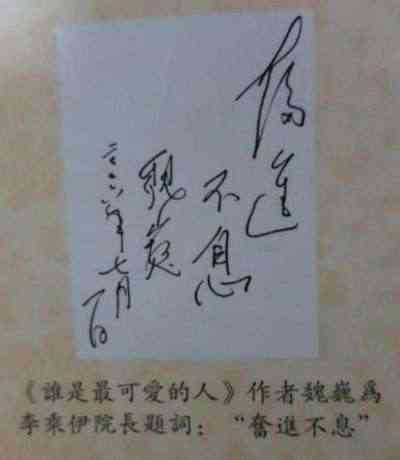 奋進
不息
魏巍
二〇〇六年七月
一日
《誰是最可愛的人》作者魏巍爲
李乘伊院長題詞：“奮進不息”